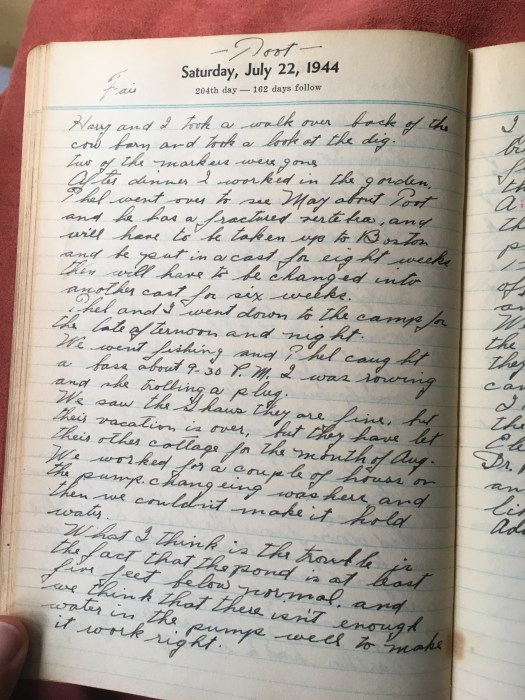 — Toot —
Saturday, July 22, 1944
Fair
204th day — 162 days follow
Harry and I took a walk over back of the
cow barn and took a look at the dig.
two of the markers were gone
After dinner I worked in the garden.
Phel went over to see May about Toot
and he has a fractured vertebra, and
will have to be taken up to Boston
and be put in a cast for eight weeks
then will have to be changed into
another cast for six weeks.
Phel and I went down to the camp for
the late afternoon and night.
We went fishing and Phel caught
a bass about 9-30 P.M. I was rowing
and she trolling a plug.
We saw the they are fine, but
their vacation is over, but they have let
their other cottage for the month of Aug.
We worked for a couple of hours on
the pump changeing washers and
then we couldn't make it hold
water.
What I think is the trouble is
the fact that the pond is at least
five feet below normal. and
we think that there isn't enough
water in the pumps well to make
it work right.
I
the
Dr.